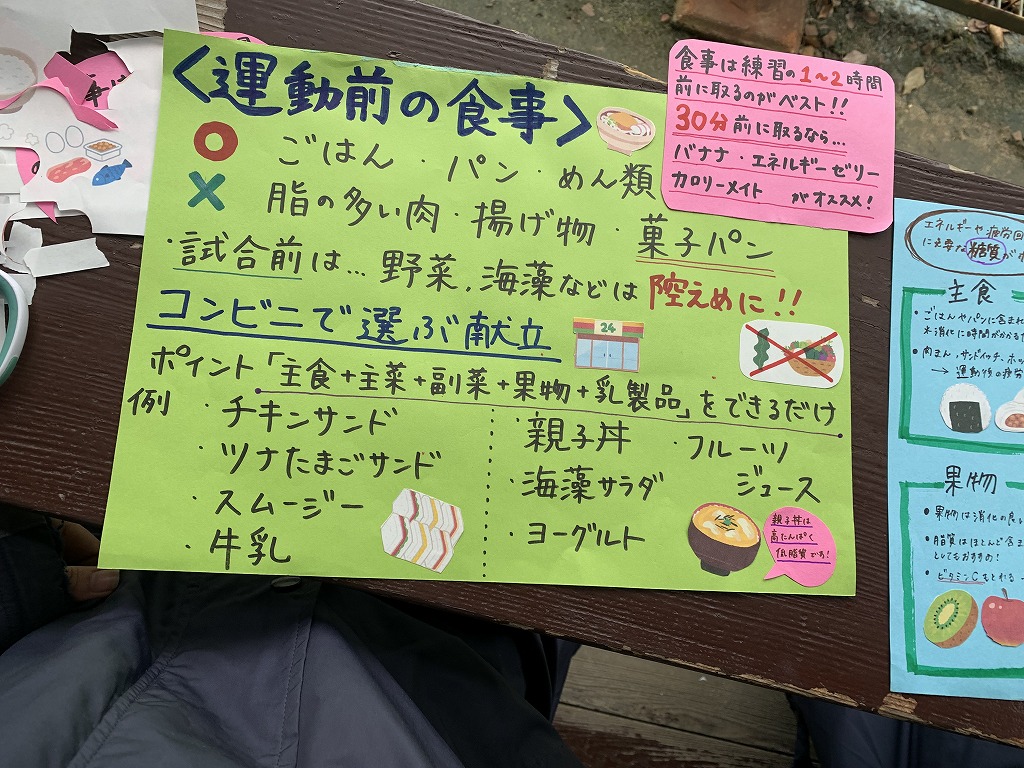 <運動前の食事>
○ ごはん・パン・めん類
× 脂の多い肉・揚げ物・菓子パン
・試合前は…野菜,海藻などは控えめに!!
コンビニで選ぶ献立
24
ポイント「主食+主菜+副菜+果物+乳製品」をできるだけ
例
・チキンサンド
・ツナたまごサンド
・スムージー
・牛乳
・親子丼
・海藻サラダ
・ヨーグルト
・フルーツ
ジュース
親子丼は
高たんぱく
低脂質です!
食事は練習の1~2時間
前に取るのがベスト!!
30分前に取るなら…
バナナ・エネルギーゼリー
カロリーメイト がオススメ!
エネルギーや疲労回
に必要な糖質が
主食
・ごはんやパンに含まれ
消化に時間がかかる
・肉まん,サンドイッチ,ホッ
→運動後の疲労
果物
・果物は消化の良い
・脂質はほとんど含ま
としてもおすすめ!
・ビタミンCもとれる